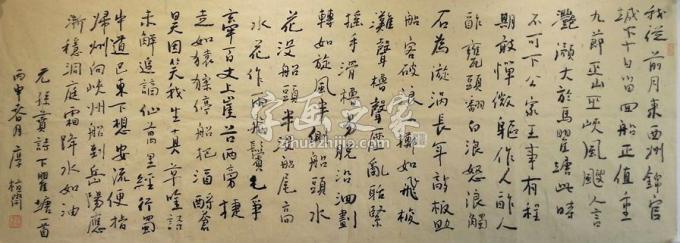 我從前月來西州錦官
城下十日留回船正值重
九節巫山巫峽風颼人言
灩澦大於馬瞿塘此時
不可下公家王事有程
期敢憚微軀作人酢人
酢甕頭翻白浪怒浪觸
石為漩渦長年敲板助
船客破浪一擲如飛梭
灘聲櫓聲歷亂聒緊
搖手滑櫓易脫沿洄劃
轉如旋風半側船頭水
花沒船頭半沒船尾高
水花作雨飛鬢毛爭
牽百丈上崖谷兩旁捷
走如猿猱停船把酒酹蒼
昊因笑我生何草草吟詩
未解追謫仙萬里經行蜀
中道巴東下想安流便指
歸州向峽州船到岳陽應
漸穩洞庭霜降水如油
詩下瞿塘一首
丙申春月
字画之家
zhuazhijia.com